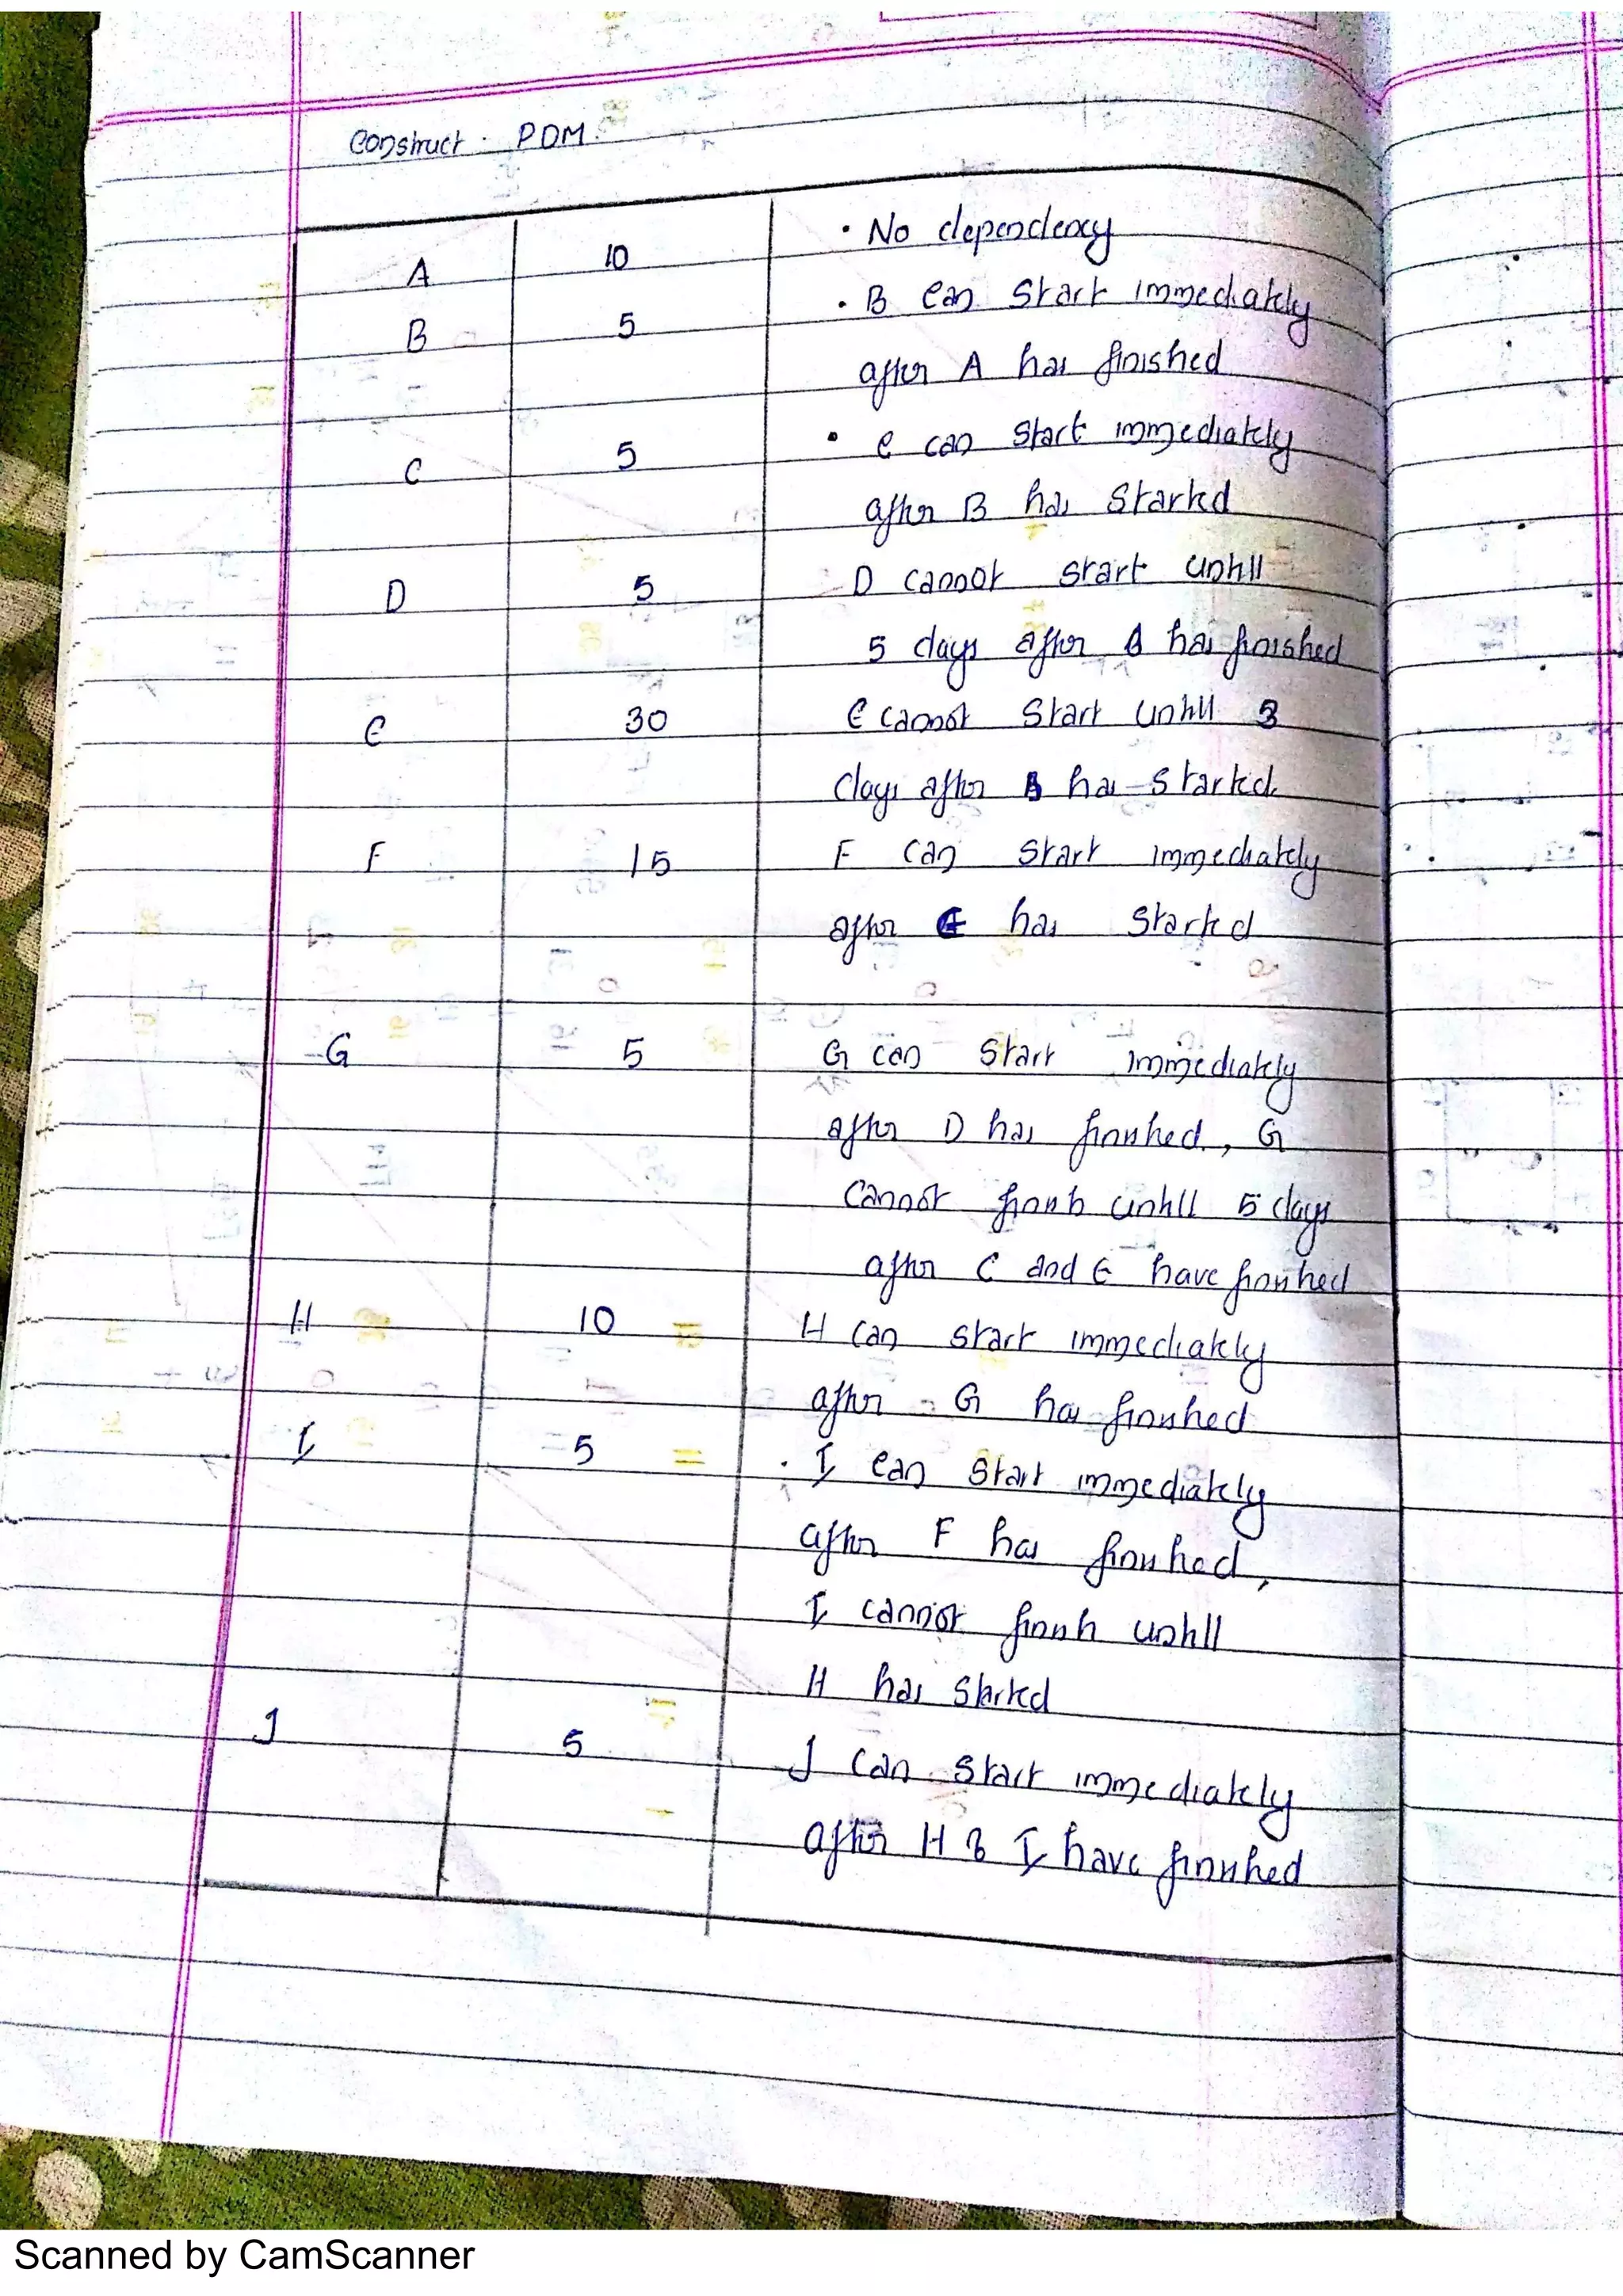 Construct PDM
A 10 • No dependency
B 5 • B can start immediately
after A has finished
C 5 • C can start immediately
after B has started
D 5 D cannot start until
5 days after has finished
E 30 E cannot start until 3
days after has started
F 15 F can start immediately
after has started
G 5 G can start immediately
after D has finished, G
cannot finish until 5 days
after C and E have finished
H 10 H can start immediately
after G has finished
I 5 • I can start immediately
after F has finished,
I cannot finish until
H has started
J 5 J can start immediately
after H & I have finished
Scanned by CamScanner